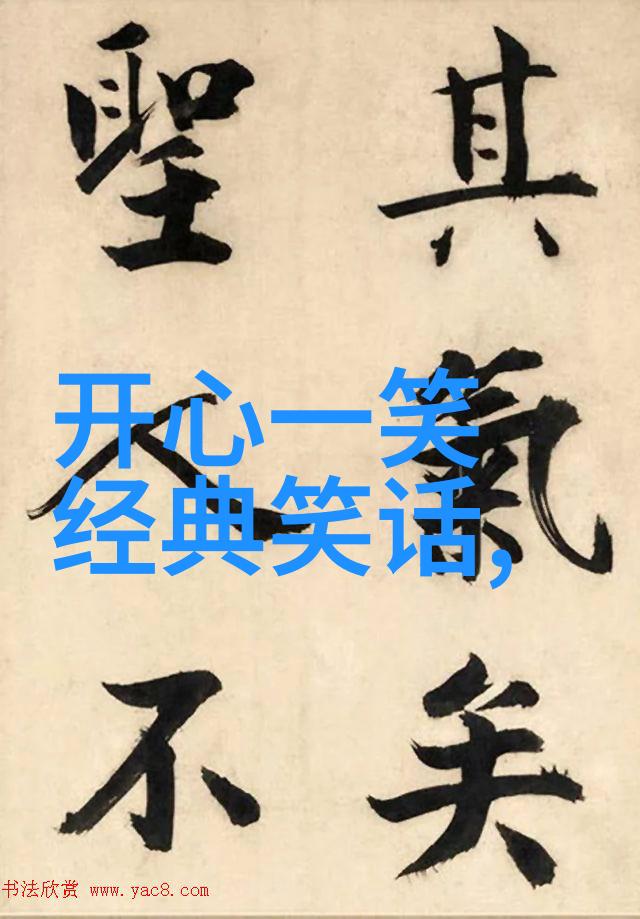 其氣矣
聖人不
开心一笑
经典笑话,
书法欣赏 www.yac8.com